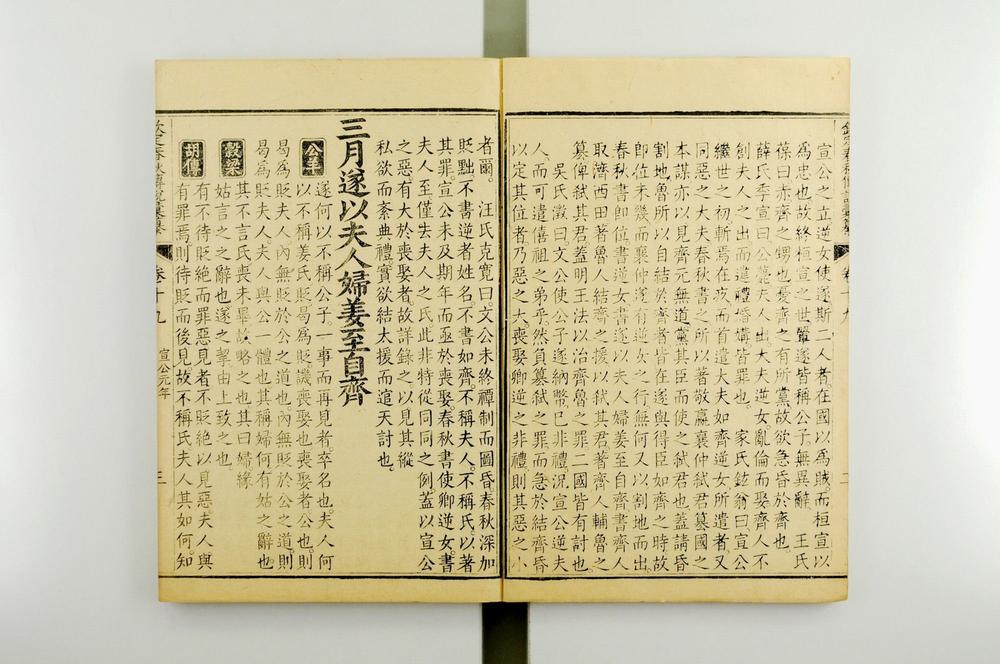 宣公之立逆女使遂斯二人者在國以爲賊而桓宣以
爲忠也故終桓宣之世翬遂皆稱公子無異辭　王氏
葆曰赤齊之甥也憂齊之有所黨故欲急昏於齊也
薛氏季宣曰公薨夫人出大夫逆女亂倫而娶齊人不
創夫人之出而違禮婚媾皆罪也　家氏鉉翁曰宣公
繼世之初斬焉在疚而首遣大夫如齊逆女所遣者又
同惡之大夫春秋書之所以著敬嬴襄仲弒君簒國之
本謀亦以見齊元無道黨其臣而使之弒君也蓋請昏
割地魯所以自結於齊者皆在遂與得臣如齊之時故
卽位未幾而襄仲遂有逆女之行無何又以割地而出
春秋書卽位書逆女書遂以夫人婦姜至自齊書齊人
取濟西田著魯人結齊之援以弒其君著齊人輔魯之
簒俾弒其君蓋明王法以治齊魯之罪二國皆有討也
吳氏澂曰文公使公子遂納幣已非禮況宣公逆夫
人而可遣僖祖之弟乎然負簒弒之罪而急於結齊昏
以定其位者乃惡之大喪娶卿逆之非禮則其惡之小
卷十九
者爾　汪氏克寬曰文公未終禫制而圖昏春秋深加
貶黜不書逆者姓名不書如齊不稱夫人不稱氏以著
其罪宣公未及期年而亟於喪娶春秋書使卿逆女書
夫人至僅去夫人之氏此非特從同同之例蓋以宣公
之惡有大於喪娶者故詳錄之以見其縱
私欲而紊典禮實欲結大援而逭天討也
三月遂以夫人婦姜至自齊
公羊　遂何以不稱公子一事而再見者卒名也夫人何
以不稱姜氏貶曷爲貶譏喪娶也喪娶者公也則
曷爲貶夫人內無貶於公之道也內無貶於公之道則
曷爲貶夫人夫人與公一體也其稱婦何有姑之辭也
穀梁　其不言氏喪未畢故略之也其曰婦緣
姑言之之辭也遂之挈由上致之也
胡傳　有不待貶絕而罪惡見者不貶絕以見惡夫人與
有罪焉則待貶而後見故不稱氏夫人其如何知
卷十九　宣公元年　三